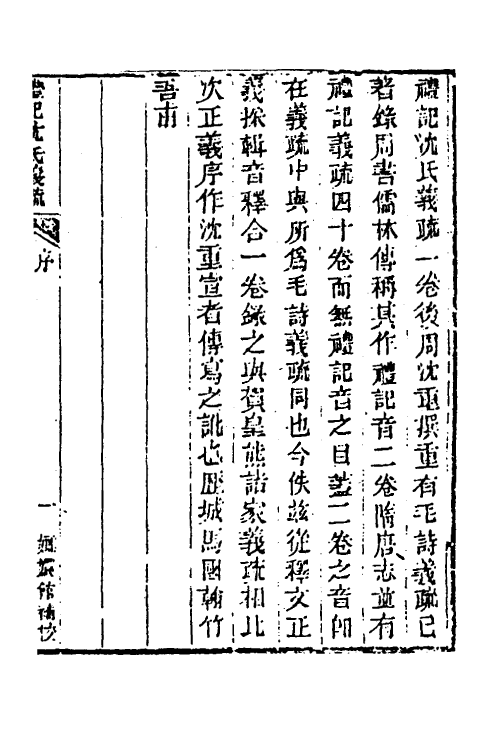 禮記沈氏義疏一卷後周沈重撰重有毛詩義疏已
著錄周書儒林傳稱其作禮記音二卷隋唐志並有
禮記義疏四十卷而無禮記音之目蓋二卷之音卽
在義疏中與所爲毛詩義疏同也今佚玆從釋文正
義採輯音釋合一卷錄之與賀皇熊諸家義疏相比
次正義序作沈重宣者傳寫之訛也歷城馬國翰竹
吾甫
禮記沈氏義疏
序
一
嫏嬛館補校